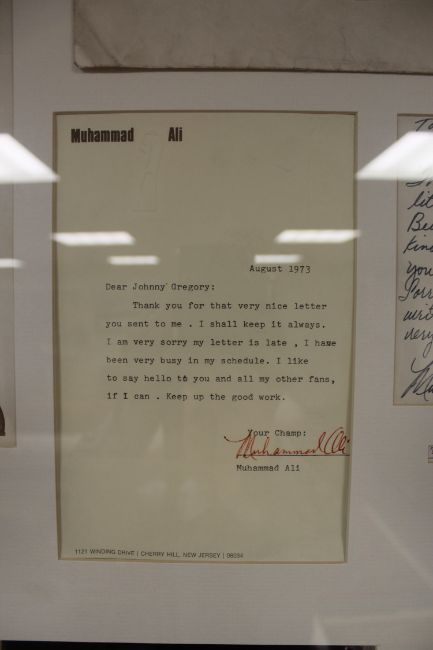 Muhammad Ali
August 1973
Dear Johnny Gregory:
Thank you for that very nice letter
you sent to me . I shall keep it always.
I am very sorry my letter is late , I have
been very busy in my schedule. I like
to say hello to you and all my other fans,
if I can . Keep up the good work.
Your Champ:
Muhammad Ali
Muhammad Ali
1121 WINDING DRIVE | CHERRY HILL, NEW JERSEY | 08034
To
lit
kin
you
Sorr
writ
very